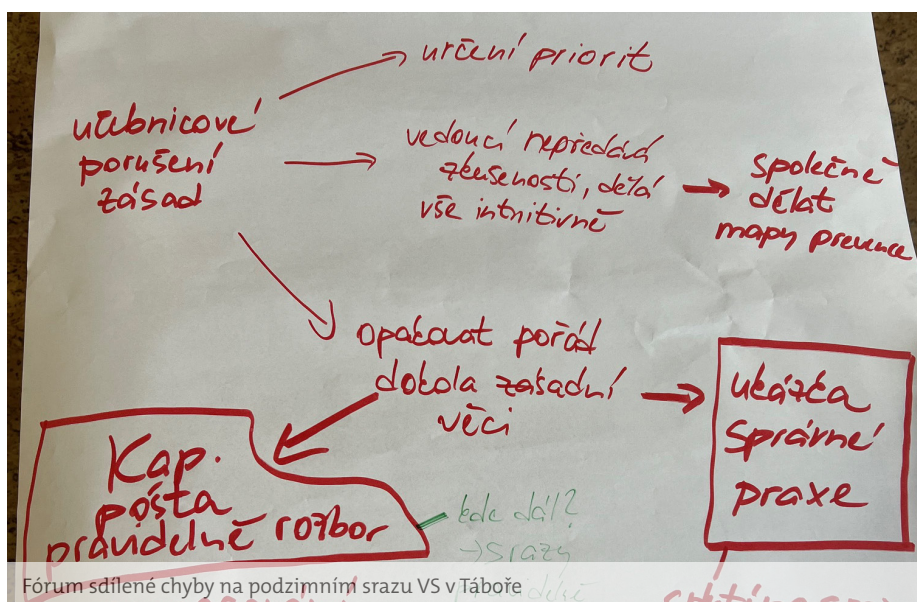 určení priorit
učebnicové
porušení
zásad
vedoucí nepředává
zkušenosti, dělá
vše intuitivně
společně
dělat
mapy prevence
opakovat pořád
dokola zásadní
věci
ukázka
správné
praxe
Kap.
pošta
pravidelně rozbor
kde dál?
→ srazy
Fórum sdílené chyby na podzimním srazu VS v Táboře